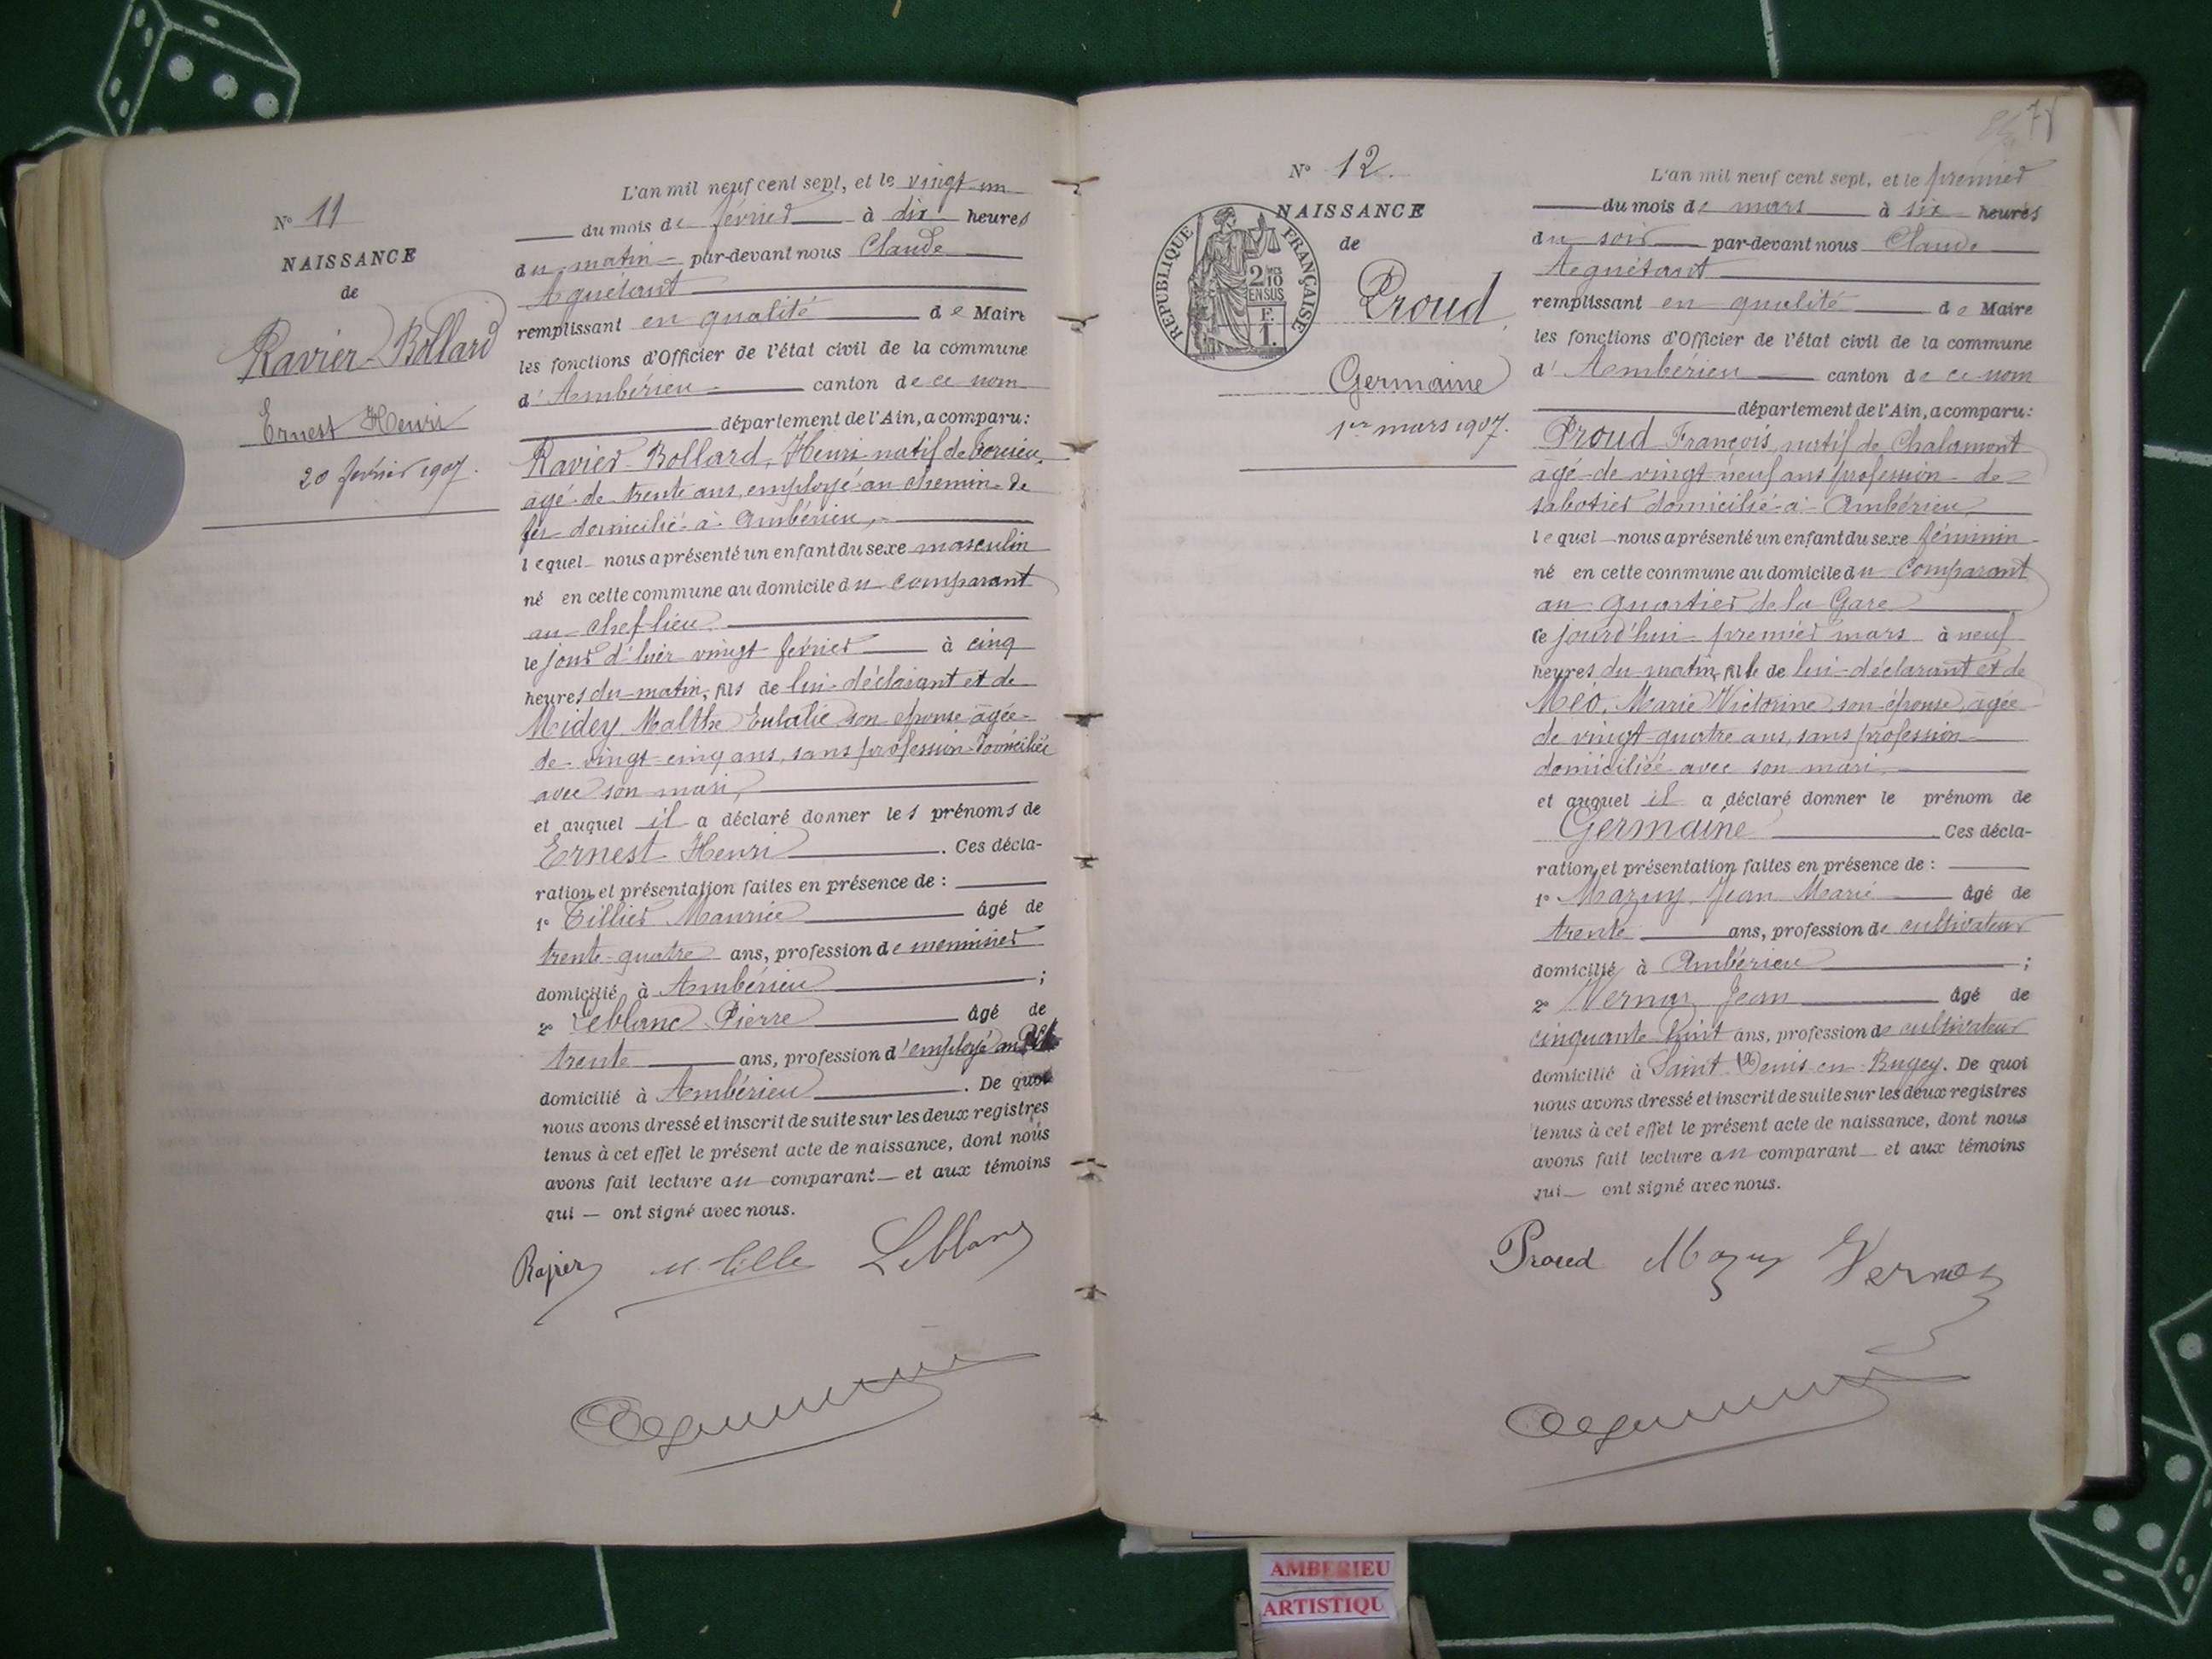 N° 11
NAISSANCE
de
Ravier-Bollard
Ernest Henri
20 février 1907.
L'an mil neuf cent sept, et le vingt un
du mois de février à dix heures
du matin par-devant nous Claude
Aguétant
remplissant en qualité de Maire
les fonctions d'Officier de l'état civil de la commune
d'Ambérieu canton de ce nom
département de l'Ain, a comparu:
Ravier-Bollard, Henri natif de
agé de trente ans, employé au chemin de
fer domicilié à Ambérieu,
lequel nous a présenté un enfant du sexe masculin
né en cette commune au domicile du comparant
au chef-lieu
le jour d'hier vingt février à cinq
heures du matin, fils de lui déclarant et de
Midey Malthe Eulalie son épouse âgée
de vingt-cinq ans, sans profession domiciliée
avec son mari,
et auquel il a déclaré donner les prénoms de
Ernest Henri. Ces décla-
ration et présentation faites en présence de :
1° Tillier Maurice âgé de
trente-quatre ans, profession de menuisier
domicilié à Ambérieu ;
2° Leblanc Pierre âgé de
trente ans, profession d'employé au
domicilié à Ambérieu. De quoi
nous avons dressé et inscrit de suite sur les deux registres
tenus à cet effet le présent acte de naissance, dont nous
avons fait lecture au comparant et aux témoins
qui — ont signé avec nous.
Ravier Leblanc
78
N° 12.
NAISSANCE
de
RÉPUBLIQUE FRANÇAISE
2/10
EN SUS
F.
1.
Proud
Germaine
1er mars 1907.
L'an mil neuf cent sept, et le premier
du mois de mars à six heures
du soir par-devant nous Claude
Aguétant
remplissant en qualité de Maire
les fonctions d'Officier de l'état civil de la commune
d'Ambérieu canton de ce nom
département de l'Ain, a comparu:
Proud François, natif de Chalamont
agé de vingt neuf ans profession de
sabotier domicilié à Ambérieu
lequel nous a présenté un enfant du sexe féminin
né en cette commune au domicile du comparant
au quartier de la Gare
ce jourd'hui premier mars à neuf
heures du matin, fille de lui déclarant et de
Méo, Marie Victorine, son épouse, agée
de vingt-quatre ans, sans profession
domiciliée avec son mari
et auquel il a déclaré donner le prénom de
Germaine. Ces décla-
ration et présentation faites en présence de :
1° Mazuy Jean Marie âgé de
trente ans, profession de cultivateur
domicilié à Ambérieu ;
2° Vernay Jean âgé de
cinquante huit ans, profession de cultivateur
domicilié à Saint Denis-en-Bugey. De quoi
nous avons dressé et inscrit de suite sur les deux registres
tenus à cet effet le présent acte de naissance, dont nous
avons fait lecture au comparant et aux témoins
qui — ont signé avec nous.
Proud Mazuy Vernay
AMBERIEU
ARTISTIQU